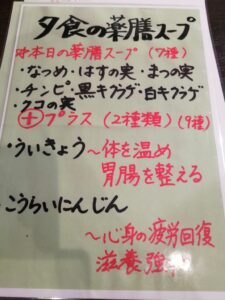 夕食の薬膳スープ
☆本日の薬膳スープ (7種)
・なつめ・はすの実・まつの実
・チンピ・黒キクラゲ・白キクラゲ
・クコの実
⊕プラス (2種類) (9種)
・ういきょう〜体を温め
胃腸を整える
・こうらいにんじん
〜心身の疲労回復
滋養強